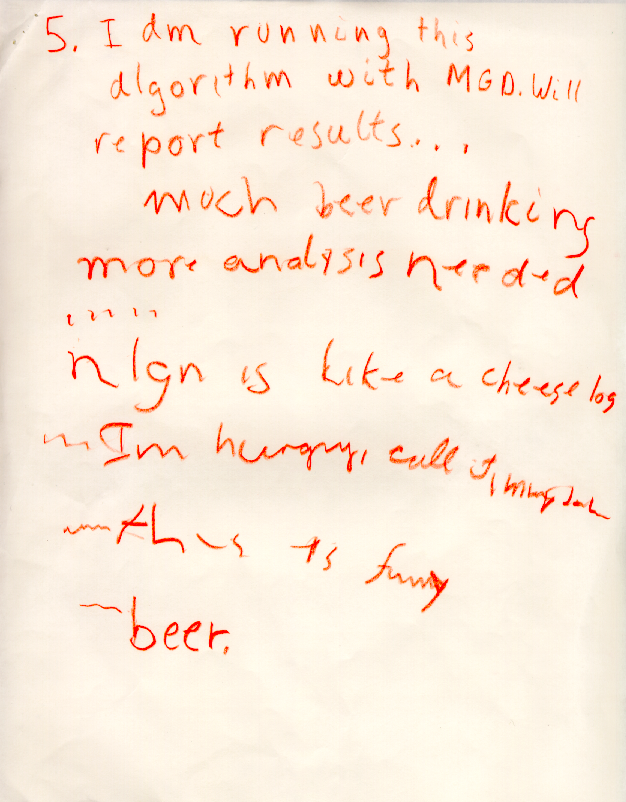 5. I am running this
algorithm with MGD. Will
report results...
much beer drinking
more analysis needed
.....
nlgn is like a cheese log
...Im hungry, call Jimmy
...this is funny
...beer.